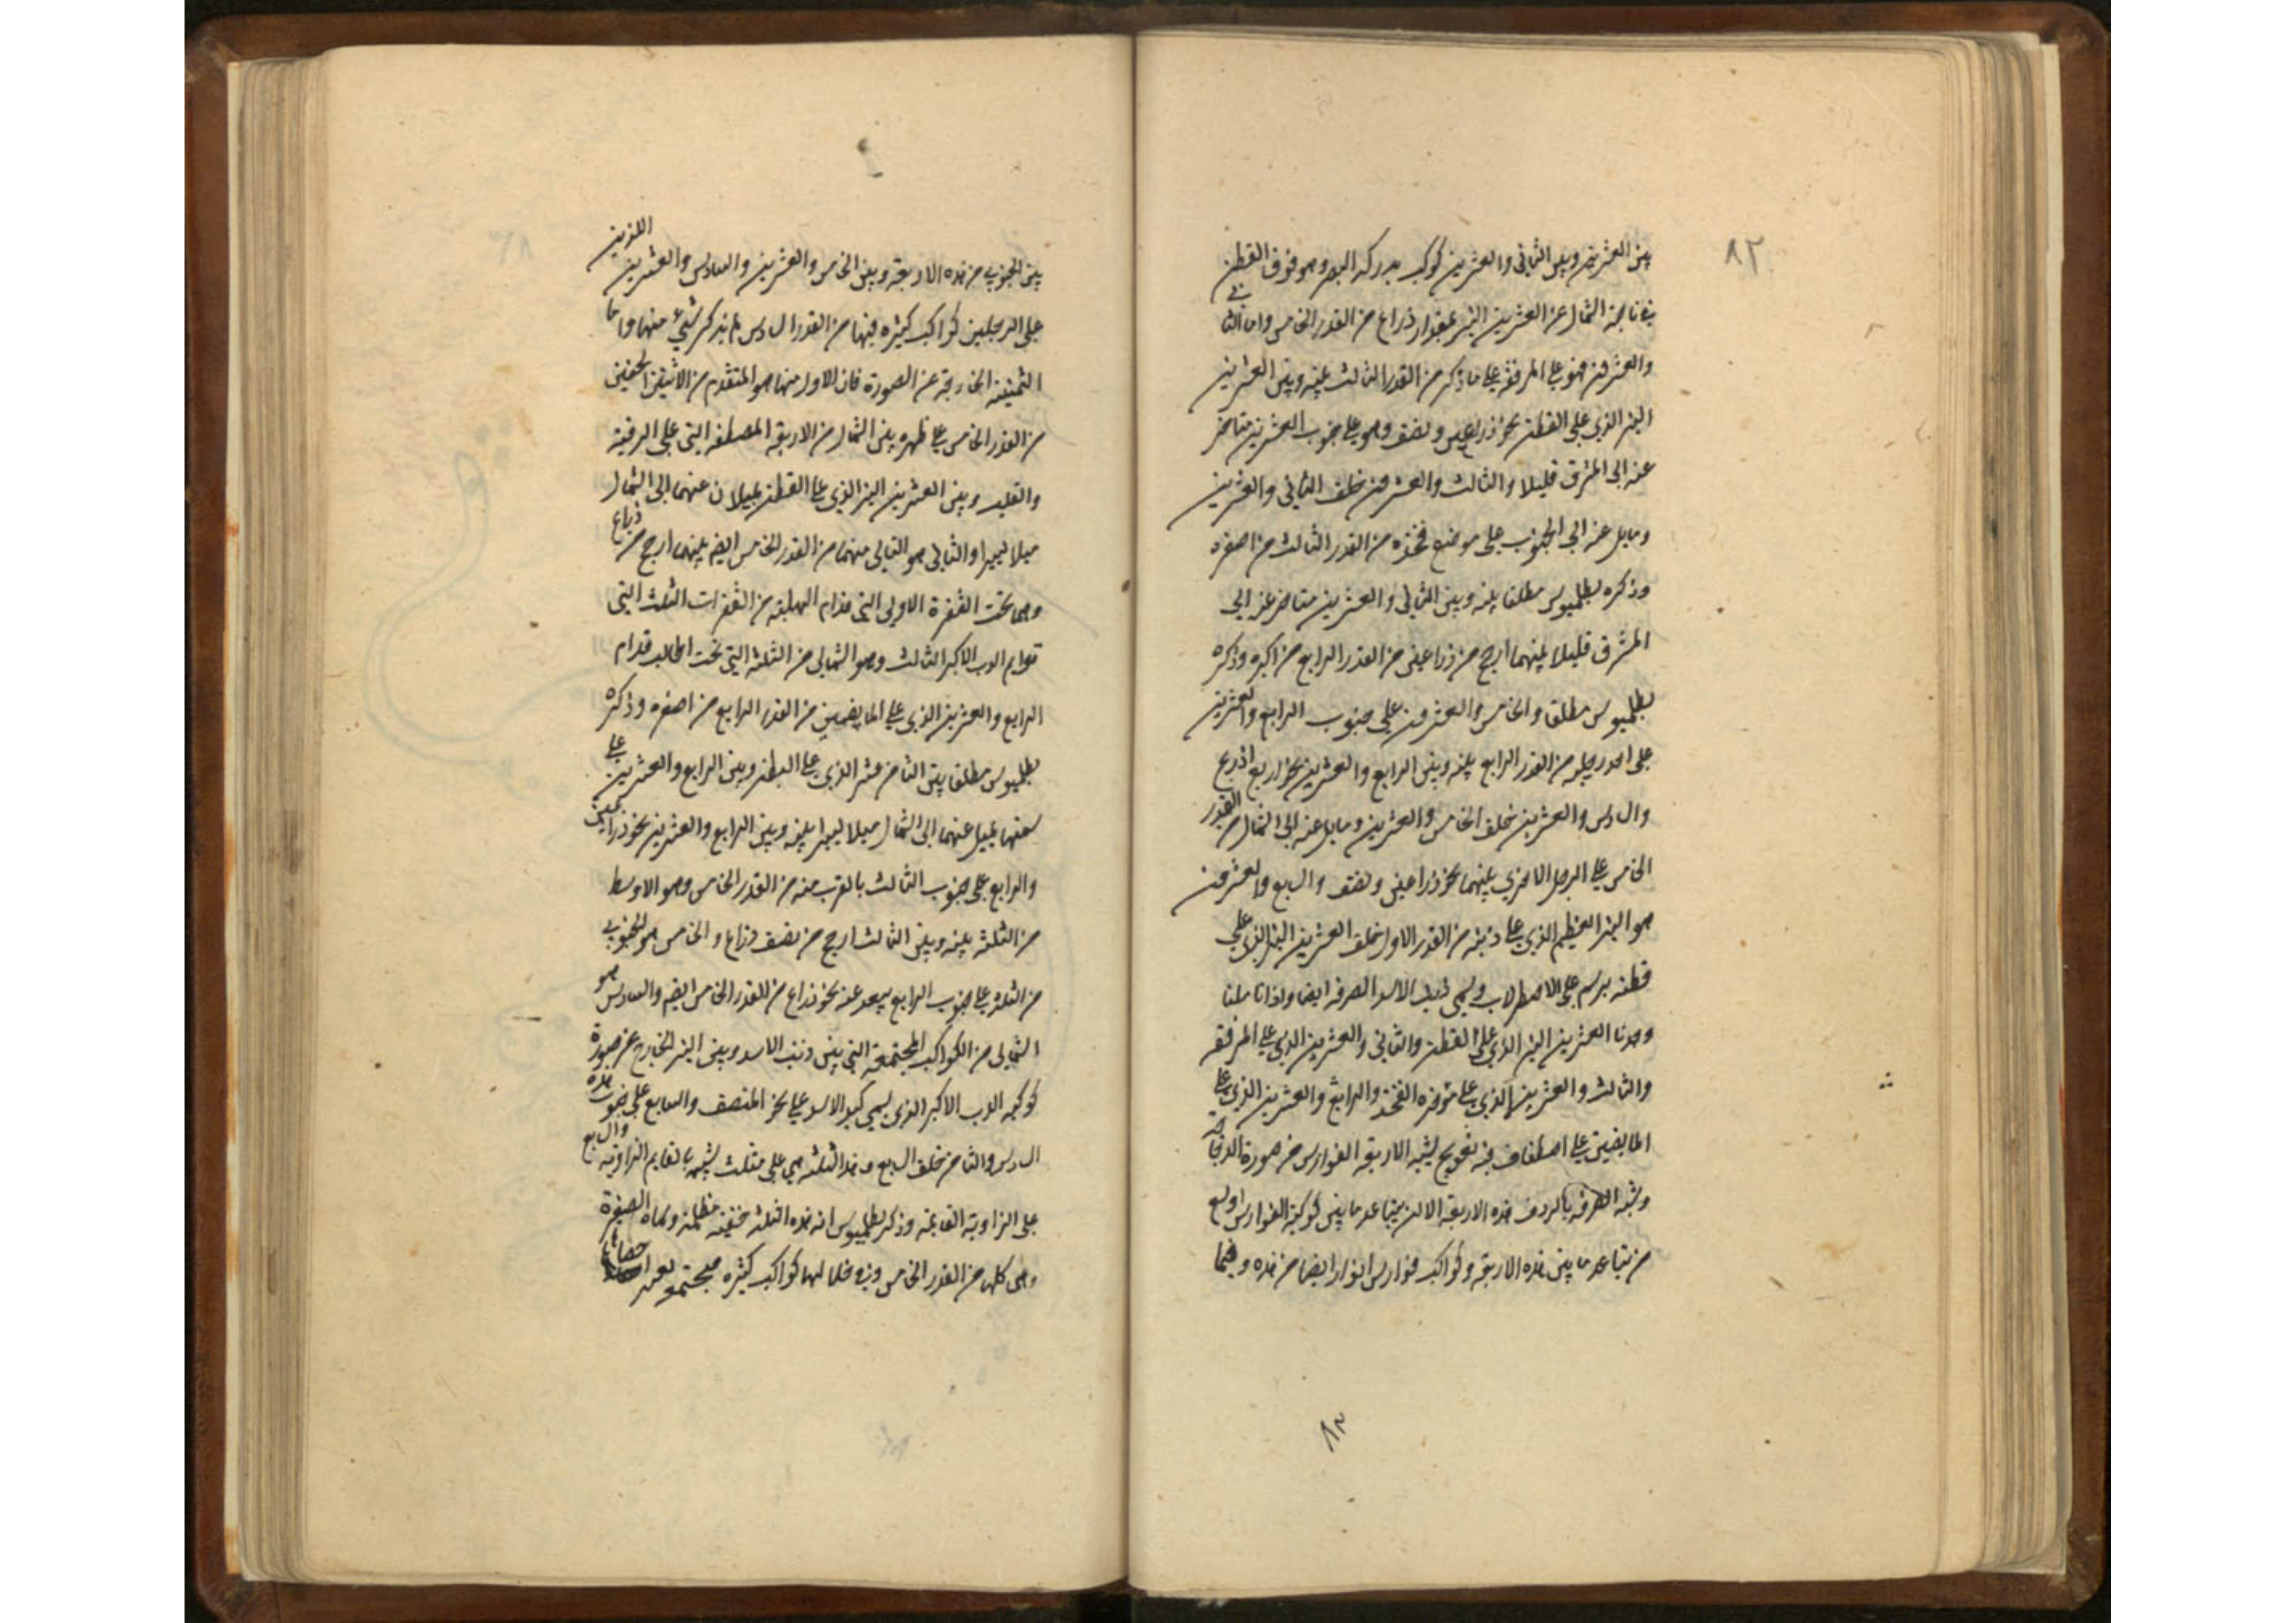 ٨٢
بين العشرين وبين الثاني والعشرين كوكب يدركه البصر وهو فوق القطن
في ناحية الشمال عن العشرين النير بمقدار ذراع من القدر الخامس واما الثاني
والعشرون فهو على المرفقة على ما ذكر من القدر الثالث بينه وبين العشرين
النير الذي على القطن نحو ذراعين ونصف وهو على جنوب العشرين متاخر
عنه الى المشرق قليلا والثالث والعشرون خلف الثاني والعشرين
ومايل عنه الى الجنوب على موضع فخذه من القدر الثالث من اصغره
وذكره بطلميوس مطلقا بينه وبين الثاني والعشرين متاخر عنه الى
المشرق قليلا بينهما ارجح من ذراعين من القدر الرابع من اكبره وذكره
بطلميوس مطلقا والخامس والعشرون على جنوب الرابع والعشرين
على احد رجليه من القدر الرابع بينه وبين الرابع والعشرين نحو اربع اذرع
والسادس والعشرين خلف الخامس والعشرين ومايل عنه الى الشمال من القدر
الخامس على الرجل الاخرى بينهما نحو ذراعين ونصف والسابع والعشرون
هو النير العظيم الذي على ذنبه من القدر الاول خلف العشرين النير الذي على
قطنه يرسم على الاصطرلاب ويسمى ذنب الاسد الصرفة ايضا واذا تاملنا
وجدنا العشرين النير الذي على القطن والثاني والعشرين الذي على المرفقة
والثالث والعشرين الذي على مؤخره الفخذ والرابع والعشرين الذي على
المابضين على اصطفاف فيه تعويج يشبه الاربعة الفوارس من صورة الدجاجة
ونشبه الصرفة بالردف هذه الاربعة الا ان تباعد ما بين كوكبة الفوارس اوسع
من تباعد ما بين هذه الاربعة وكواكب فوارس انوار ايضا من هذه وفيما
٨٣
بين الجنوبي من هذه الاربعة وبين الخامس والعشرين والسادس والعشرين اللذين
على الرجلين كواكب كثيره فيها من القدر السادس لم يذكر شيء منها واما
الثمنية الخارجة عن الصورة فان الاول منها هو المتقدم من الاثنين الخفيين
من القدر الخامس على ظهره بين الشمال من الاربعة المصطفة التي على الرقبة
والقلب وبين العشرين النير الذي على القطن يميلان عنهما الى الشمال
ميلا يسيرا والثاني هو التالي منهما من القدر الخامس ايضا بينهما ارجح من ذراع
وهما تحت القفزة الاولى التي قدام الهلبة من القفزات الثلث التي
قوايم الدب الاكبر الثالث وهو الشمالى من الثلثة التي تحت المخالب قدام
الرابع والعشرين الذي على المابضين من القدر الرابع من اصغره وذكره
بطلميوس مطلقا بين الثامن عشر الذي على البطن وبين الرابع والعشرين على
سمتهما يميل عنهما الى الشمال ميلا يسيرا بينه وبين الرابع والعشرين نحو ذراعين
والرابع على جنوب الثالث بالقرب منه من القدر الخامس وهو الاوسط
من الثلثة بينه وبين الثالث ارجح من نصف ذراع والخامس هو الجنوبي
من الثلثة على جنوب الرابع يبعد عنه نحو ذراع من القدر الخامس ايضا والسادس هو
الشمالى من الكواكب المجتمعة التي بين ذنب الاسد وبين النير الخارج عن صورة
كوكبة الدب الاكبر الذي يسمى كبد الاسد على نحو المنتصف والسابع على جنوب هذه
السادس والثامن خلف السابع وهذه الثلثة هي على مثلث يشبه بالقايم الزاوية والسابع
على الزاوية القايمة وذكر بطلميوس ان هذه الثلثة خفية مظلمة وسماه الضفيرة
وهي كلها من القدر الخامس وفي خلالها كواكب كثيره مجتمعة